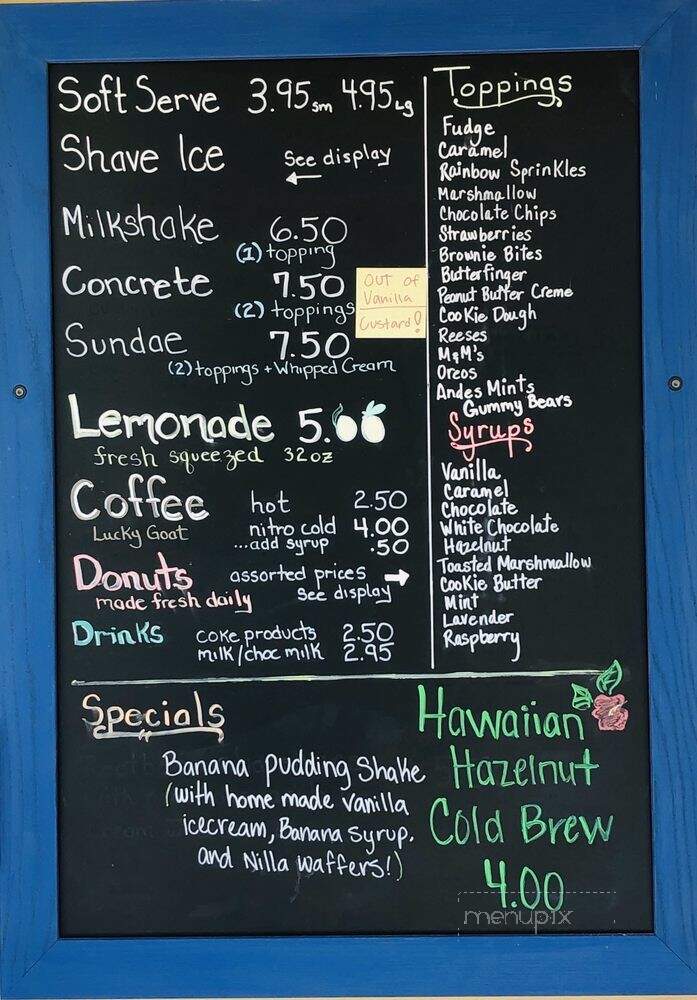 Soft Serve 3.95 sm 4.95 Lg
Shave Ice See display
←
Milkshake 6.50
(1) topping
Concrete 7.50
(2) toppings
OUT of
Vanilla
Custard!
Sundae 7.50
(2) toppings + Whipped Cream
Lemonade 5.00
fresh squeezed 32oz
Coffee hot 2.50
Lucky Goat nitro cold 4.00
...add syrup .50
Donuts assorted prices →
made fresh daily see display
Drinks coke products 2.50
milk/choc milk 2.95
Toppings
Fudge
Caramel
Rainbow Sprinkles
Marshmallow
Chocolate Chips
Strawberries
Brownie Bites
Butterfinger
Peanut Butter Creme
Cookie Dough
Reeses
M&M's
Oreos
Andes Mints
Gummy Bears
Syrups
Vanilla
Caramel
Chocolate
White Chocolate
Hazelnut
Toasted Marshmallow
Cookie Butter
Mint
Lavender
Raspberry
Specials
Banana Pudding Shake
(with home made vanilla
icecream, Banana syrup,
and Nilla waffers!)
Hawaiian
Hazelnut
Cold Brew
4.00
menupix